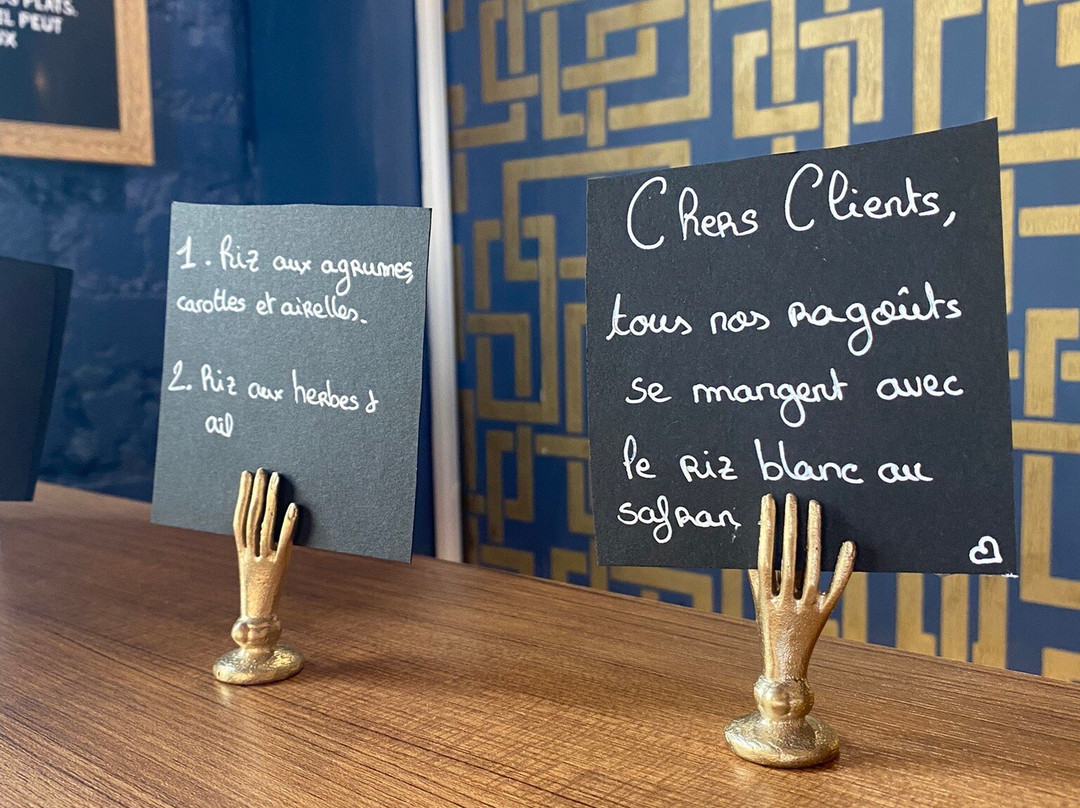 PLATS.
PEUT
1. Riz aux agrumes,
carottes et airelles.
2. Riz aux herbes &
ail
Chers Clients,
tous nos ragoûts
se mangent avec
le riz blanc au
safran